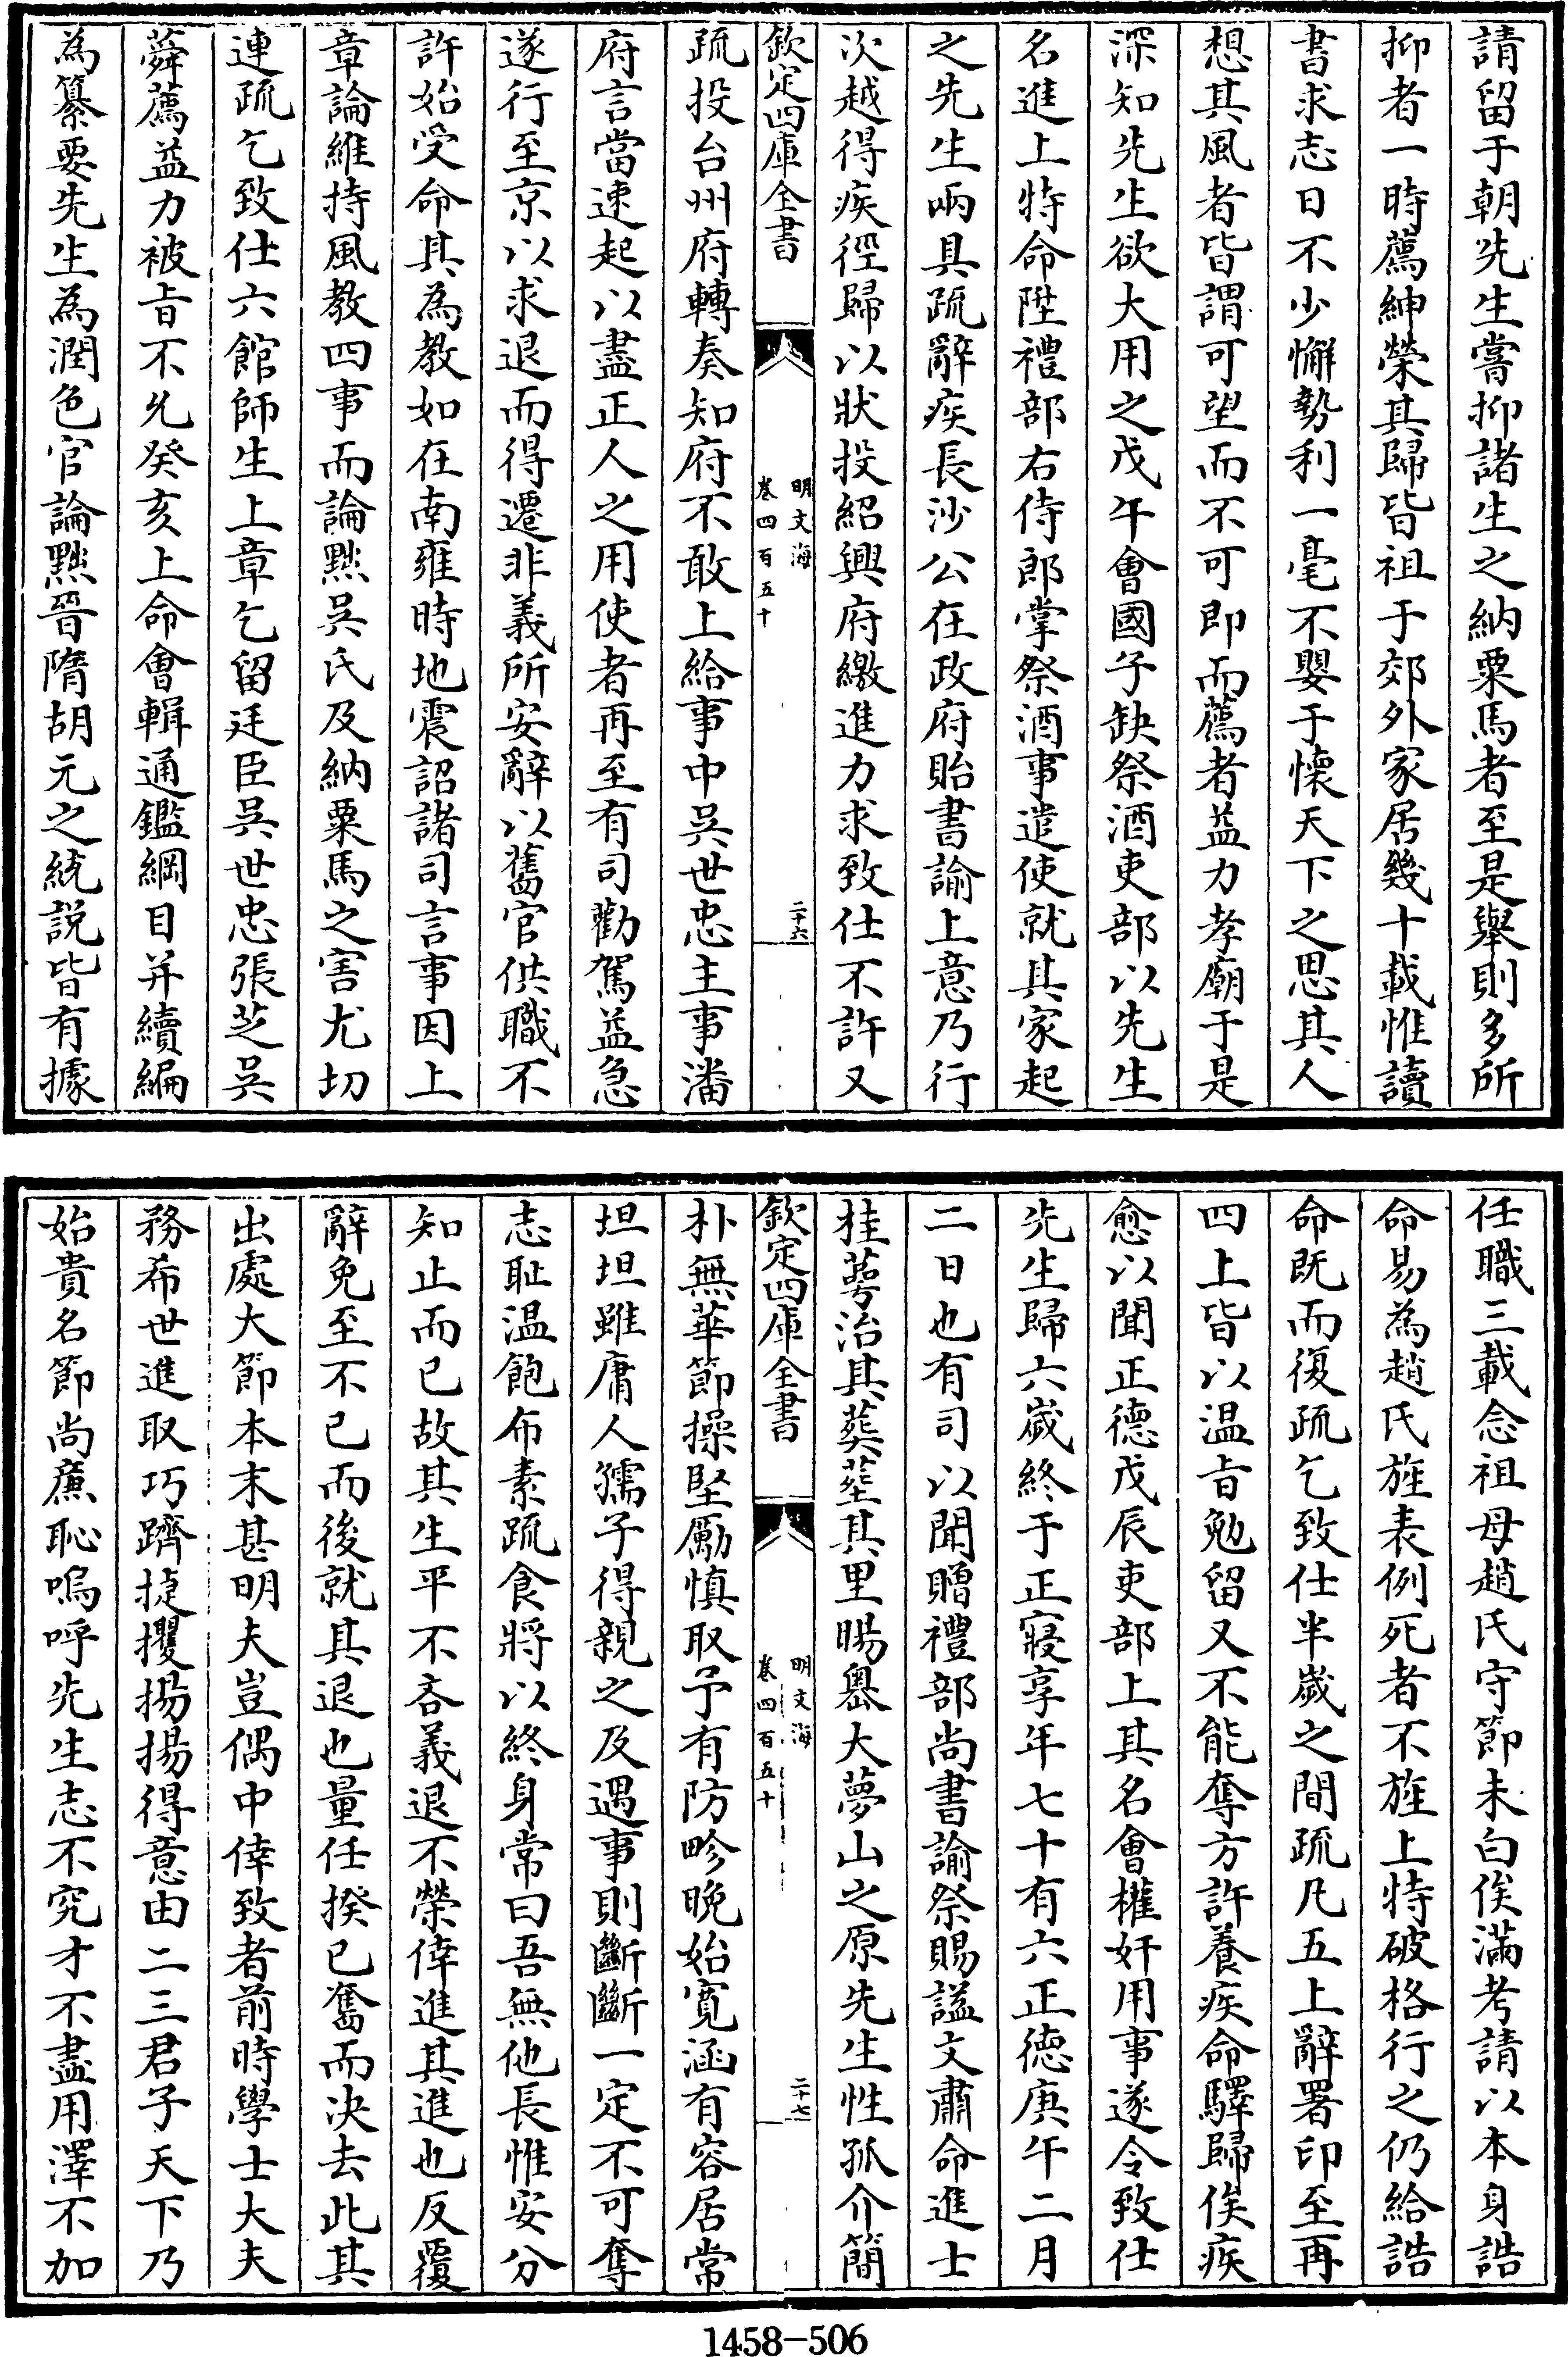 請留于朝先生嘗抑諸生之納粟馬者至是舉則多所
抑者一時薦紳榮其歸皆祖于郊外家居幾十載惟讀
書求志日不少懈勢利一毫不嬰于懷天下之思其人
想其風者皆謂可望而不可即而薦者益力孝廟于是
深知先生欲大用之戊午會國子缺祭酒吏部以先生
名進上特命陞禮部右侍郎掌祭酒事遣使就其家起
之先生兩具疏辭疾長沙公在政府貽書諭上意乃行
次越得疾徑歸以狀投紹興府繳進力求致仕不許又
欽定四庫全書
明文海
卷四百五十
二十六
疏投台州府轉奏知府不敢上給事中吳世忠主事潘
府言當速起以盡正人之用使者再至有司勸駕益急
遂行至京以求退而得遷非義所安辭以舊官供職不
許始受命其為教如在南雍時地震詔諸司言事因上
章論維持風教四事而論黜吳氏及納粟馬之害尤切
連疏乞致仕六館師生上章乞留廷臣吳世忠張芝吳
蕣薦益力被旨不允癸亥上命會輯通鑑綱目并續編
為纂要先生為潤色官論黜晉隋胡元之統說皆有據
任職三載念祖母趙氏守節未白俟滿考請以本身誥
命易為趙氏旌表例死者不旌上特破格行之仍給誥
命既而復疏乞致仕半歲之間疏凡五上辭署印至再
四上皆以温旨勉留又不能奪方許養疾命驛歸俟疾
愈以聞正德戊辰吏部上其名會權奸用事遂令致仕
先生歸六歲終于正寢享年七十有六正德庚午二月
二日也有司以聞贈禮部尚書諭祭賜諡文肅命進士
桂萼治其葬塟其里暘嶴大夢山之原先生性孤介簡
欽定四庫全書
明文海
卷四百五十
二十七
朴無華節操堅勵慎取予有防畛晚始寬涵有容居常
坦坦雖庸人孺子得親之及遇事則斷斷一定不可奪
志耻温飽布素疏食將以終身常曰吾無他長惟安分
知止而已故其生平不吝義退不榮倖進其進也反覆
辭免至不已而後就其退也量任揆已奮而决去此其
出處大節本末甚明夫豈偶中倖致者前時學士大夫
務希世進取巧躋捷攫揚揚得意由二三君子天下乃
始貴名節尚亷恥嗚呼先生志不究才不盡用澤不加
1458-506